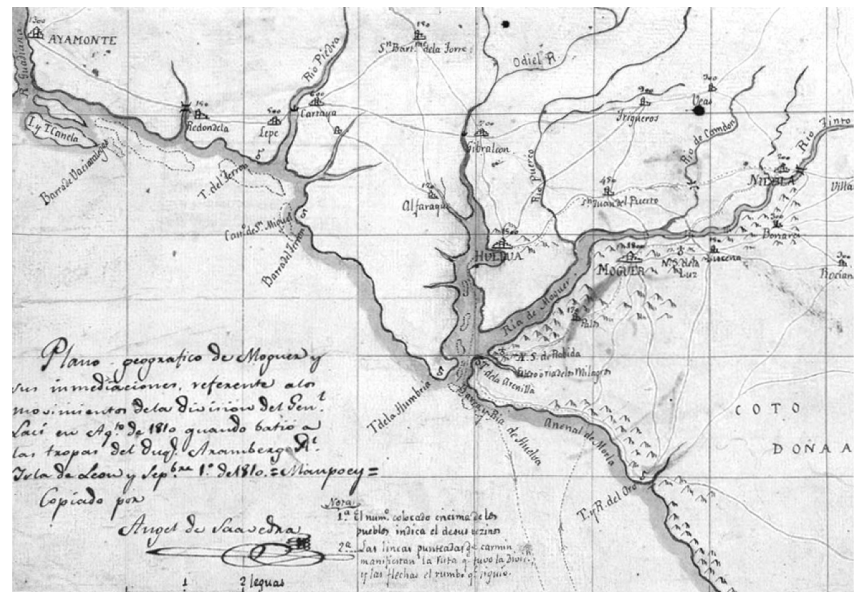 1300
AYAMONTE
R. Guadiana
I. y T. Canela
Barra de
Redondela
Lepe
Cartaya
Rio Piedra
T. del Terron
Barra del Terron
Sn. Bart. de la Torre
Odiel R
Gibraleon
Alfaraque
HUELVA
Rio Puerto
Trigueros
Veas
Rio de Candon
Rio Tinto
NIEBLA
Villa
Sn. Juan del Puerto
Bonares
Lucena
Rocian
MOGUER
N. S. de la
Luz
Ria de Moguer
Palos
N. S. de Rabida
T. de la Arenilla
T. de la Humbria
Barra y Ria de Huelva
Arenal de Morla
T. y R. del Oro
COTO
DOÑA A
Plano geografico de Moguer y
sus inmediaciones, referente a los
movimientos de la division del Gen.l
Laci en Ag.to de 1810 quando batio a
las tropas del Duq.e Aramberg. Rl.
Isla de Leon y Sep.bre 1.º de 1810. = Maupoey =
Copiado por
Angel de Saavedra
1 2 leguas
Nota
1.ª El num.º colocado encima de los
pueblos indica el de sus vezinos
2.ª Las lineas punteadas de carmin
manifiestan la Ruta q. tuvo la Divi.
y las flechas el rumbo q. siguio.